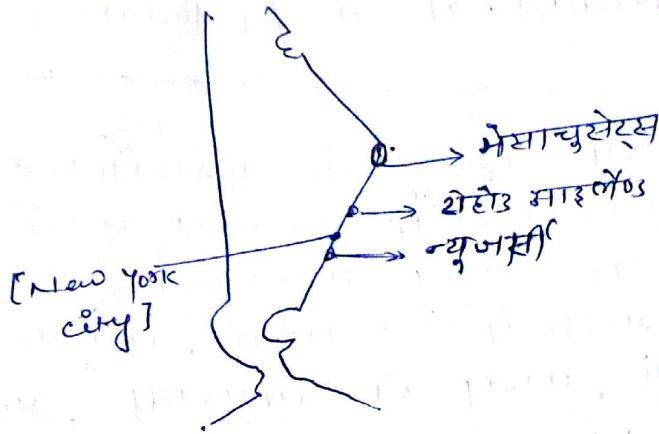 मेसाचुसेट्स
रोहोड आइलैण्ड
न्यूजर्सी
[New York
city]